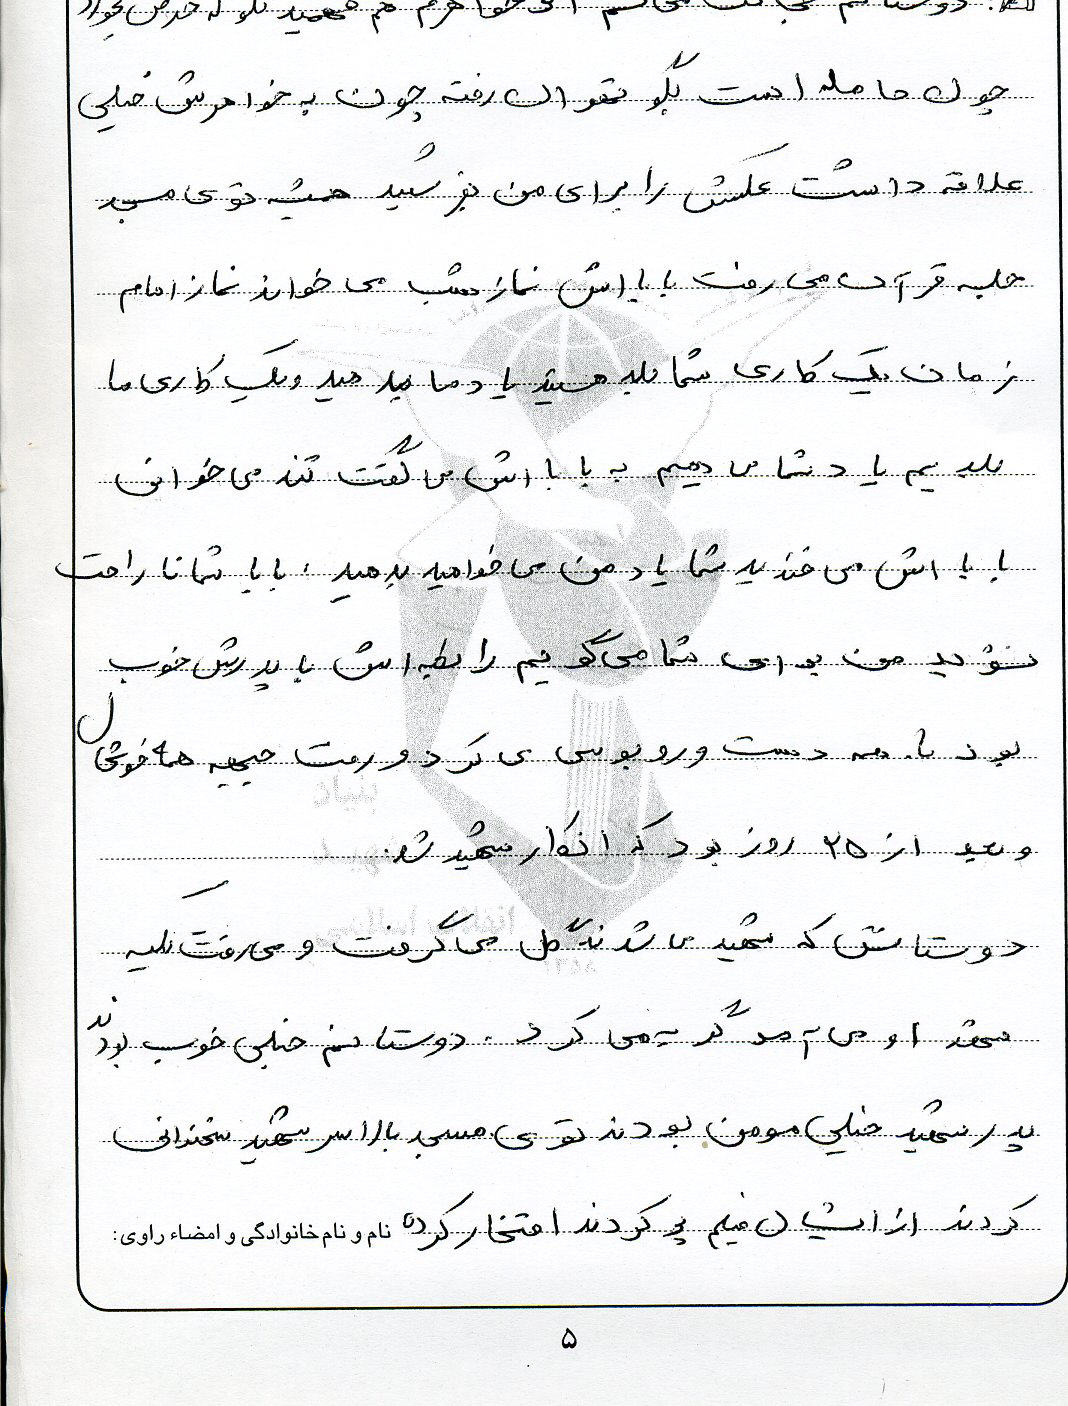 چون حامله است بگو تهران رفته چون به خواهرش خیلی
علاقه داشت عکسش را برای من بفرستید همیشه توی مسجد
جلسه قرآن می رفت با باباش نماز شب می خواند نماز امام
زمان یک کاری شما بلد هستید یاد ما بدهید و یک کاری ما
بلدیم یاد شما می دهیم به با بااش می گفت تند می خوانی
با بااش می خندید شما یاد من می خواهید بدهید ، بابا شما ناراحت
نشوید من برای شما می گویم رابطه اش با پدرش خوب
بود با همه دست و رو بوسی می کرد و رفت جبهه همه خوشحال
و بعد از ۲۵ روز بود که انگار شهید شد.
دوستانش که شهید می شدند گل می گرفت و می رفت تکیه
شهدا و می آمد گریه می کرد . دوستانش خیلی خوب بودند
پدر شهید خیلی مومن بودند توی مسجد بالا سر شهید سخنرانی
کردند از ایشان فیلم پر کردند افتخار کرده
نام و نام خانوادگی و امضاء راوی:
۵